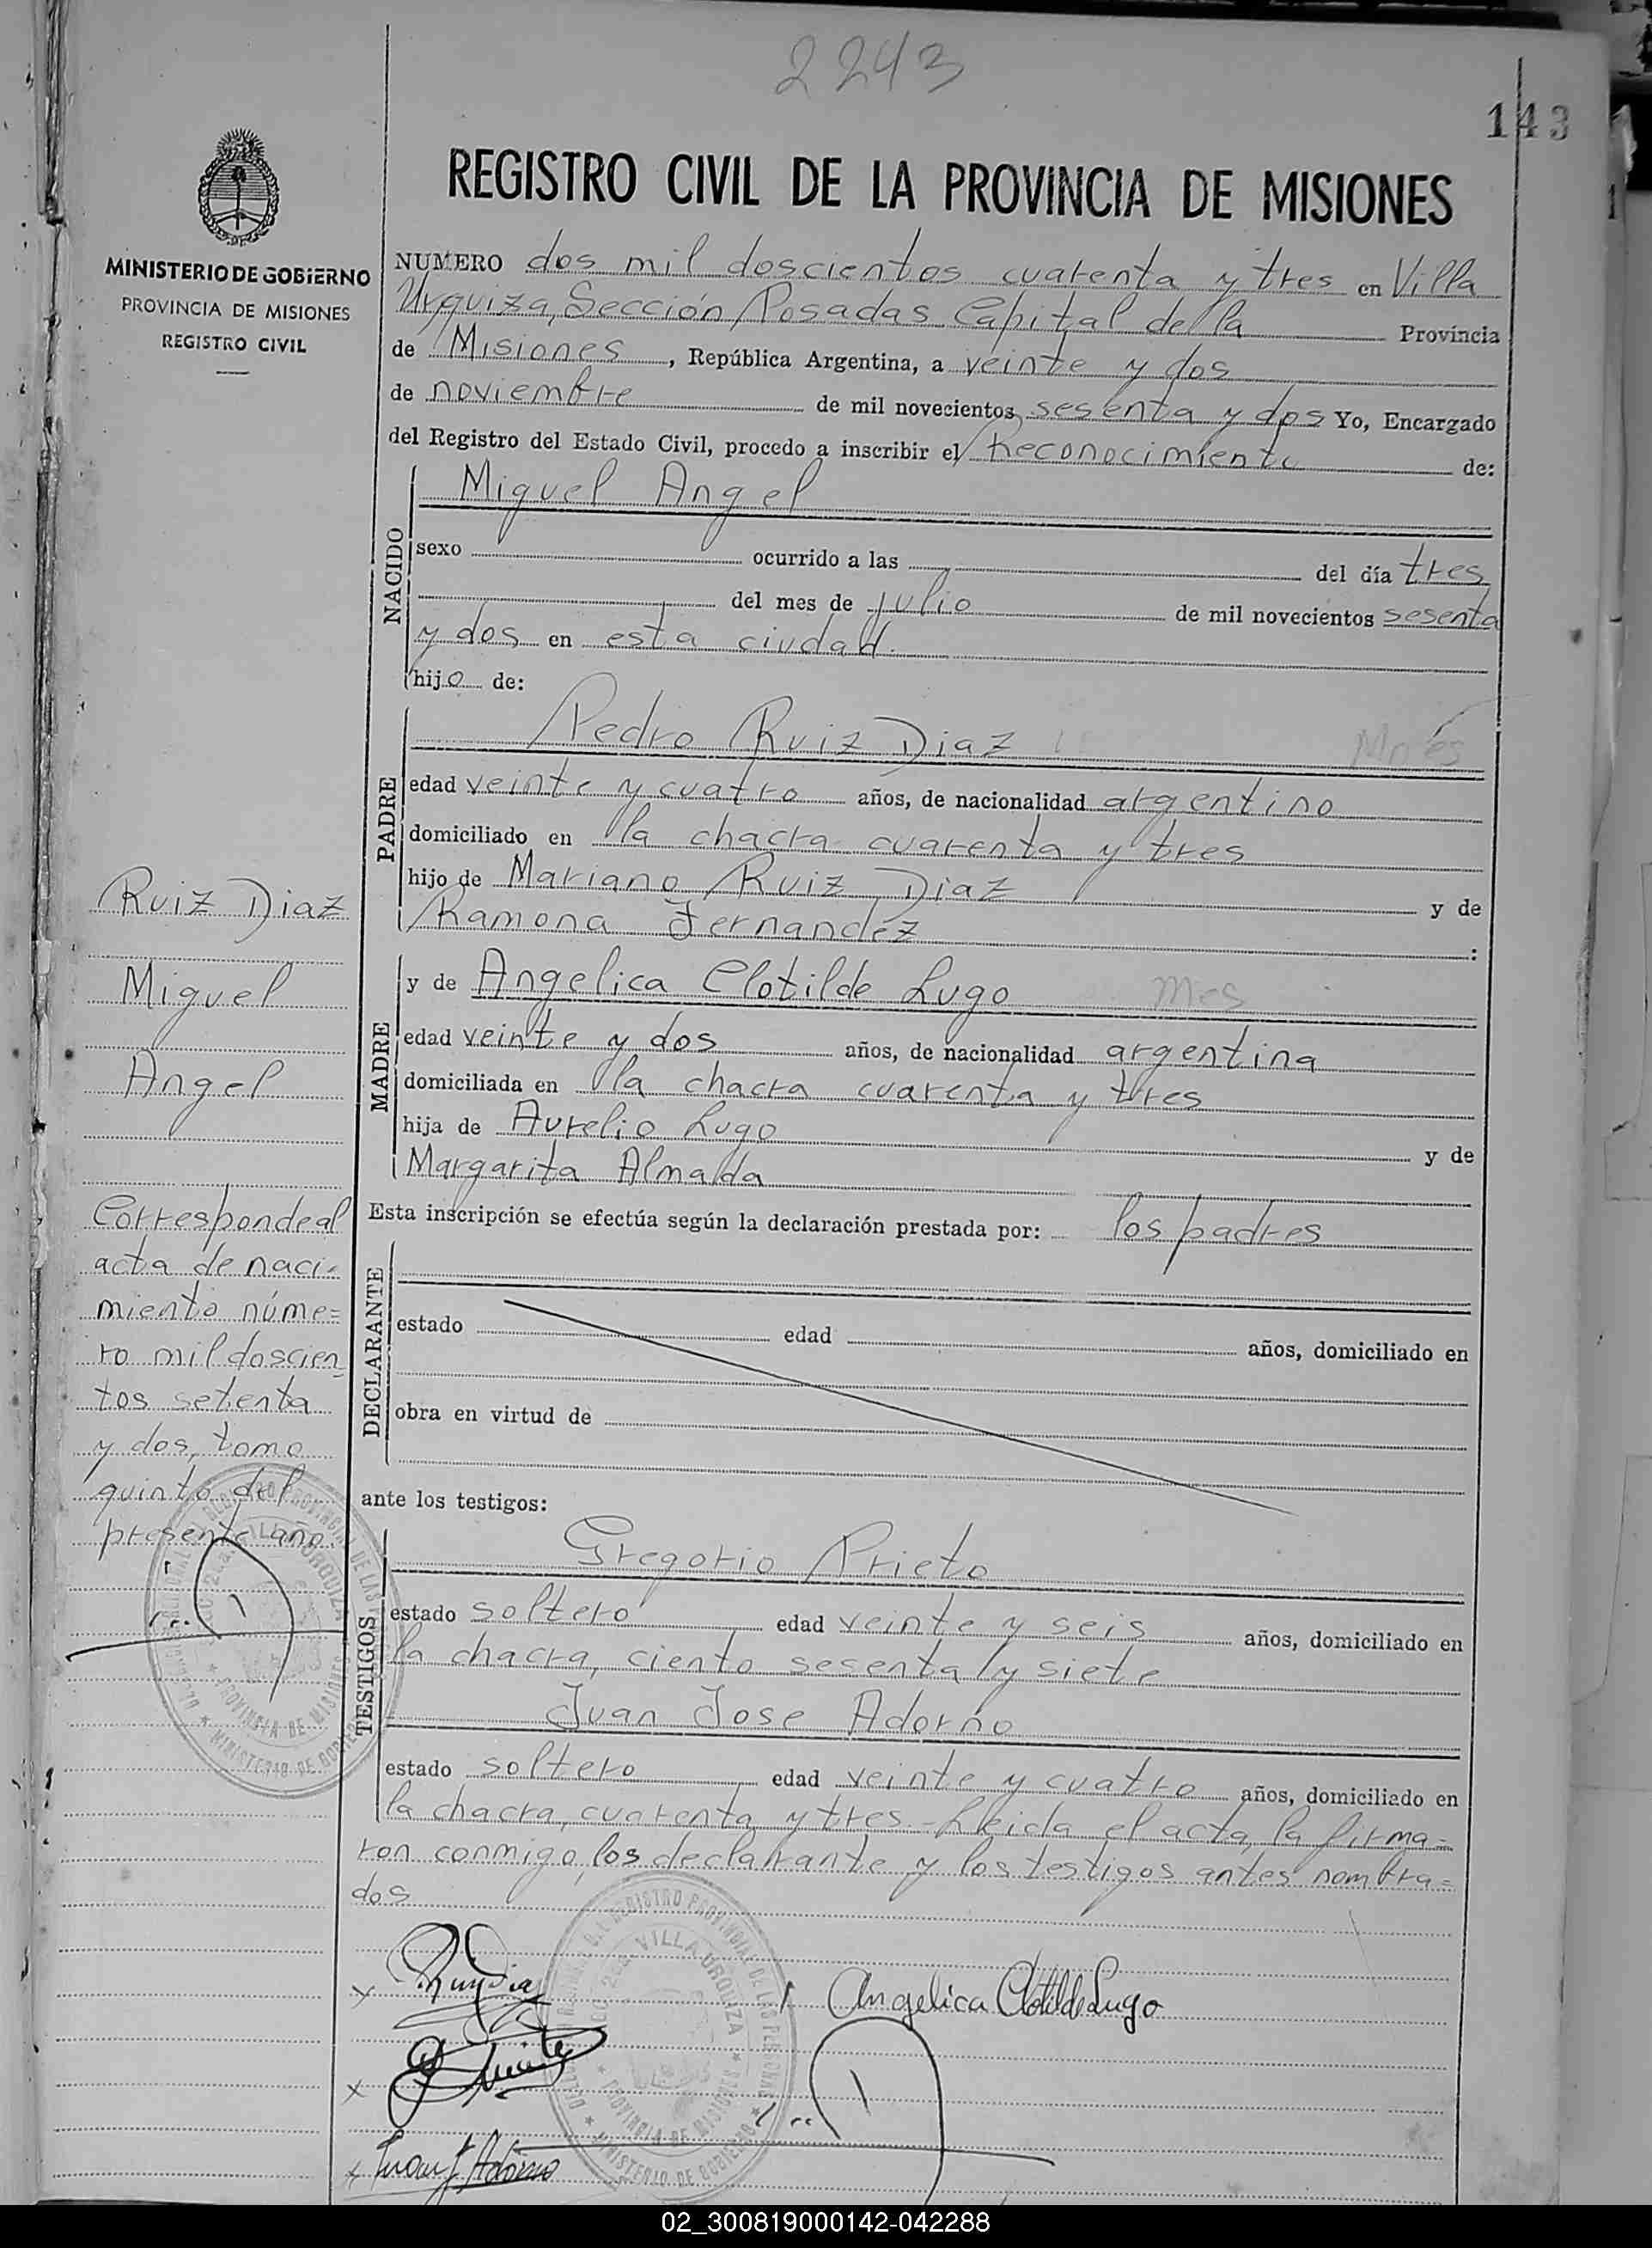 2243
143
REGISTRO CIVIL DE LA PROVINCIA DE MISIONES
MINISTERIO DE GOBIERNO
PROVINCIA DE MISIONES
REGISTRO CIVIL
NUMERO dos mil doscientos cuarenta y tres en Villa
Urquiza, Sección Posadas Capital de la Provincia
de Misiones, República Argentina, a veinte y dos
de noviembre de mil novecientos sesenta y dos Yo, Encargado
del Registro del Estado Civil, procedo a inscribir el Reconocimiento de:
NACIDO
Miguel Angel
sexo ocurrido a las del día tres
del mes de julio de mil novecientos sesenta
y dos en esta ciudad.
hijo de:
PADRE
Pedro Ruiz Diaz
edad veinte y cuatro años, de nacionalidad argentino
domiciliado en la chacra cuarenta y tres
hijo de Mariano Ruiz Diaz y de
Ramona Fernandez :
MADRE
y de Angelica Clotilde Lugo
edad veinte y dos años, de nacionalidad argentina
domiciliada en la chacra cuarenta y tres
hija de Aurelio Lugo y de
Margarita Almada
Esta inscripción se efectúa según la declaración prestada por: los padres
DECLARANTE
estado edad años, domiciliado en
obra en virtud de
ante los testigos:
TESTIGOS
Gregorio Prieto
estado soltero edad veinte y seis años, domiciliado en
la chacra, ciento sesenta y siete
Juan Jose Adorno
estado soltero edad veinte y cuatro años, domiciliado en
la chacra, cuarenta y tres.- Leida el acta, la firma=
ron conmigo, los declarante y los testigos antes nombra=
dos
Ruiz Diaz
Miguel
Angel
Corresponde al
acta de naci-
miento núme=
ro mil doscien
tos setenta
y dos, tomo
quinto del
presente año.
Angelica Clotilde Lugo
Juan J Adorno
VILLA URQUIZA
PROVINCIA DE MISIONES
MINISTERIO DE GOBIERNO
02_300819000142-042288